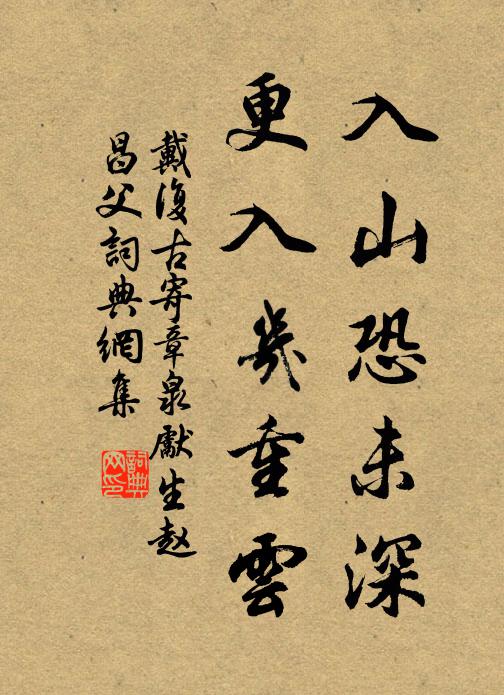 入山恐未深
更入幾重雲
戴復古寄章泉獻生赵
昌父詞典網集
詞典網印